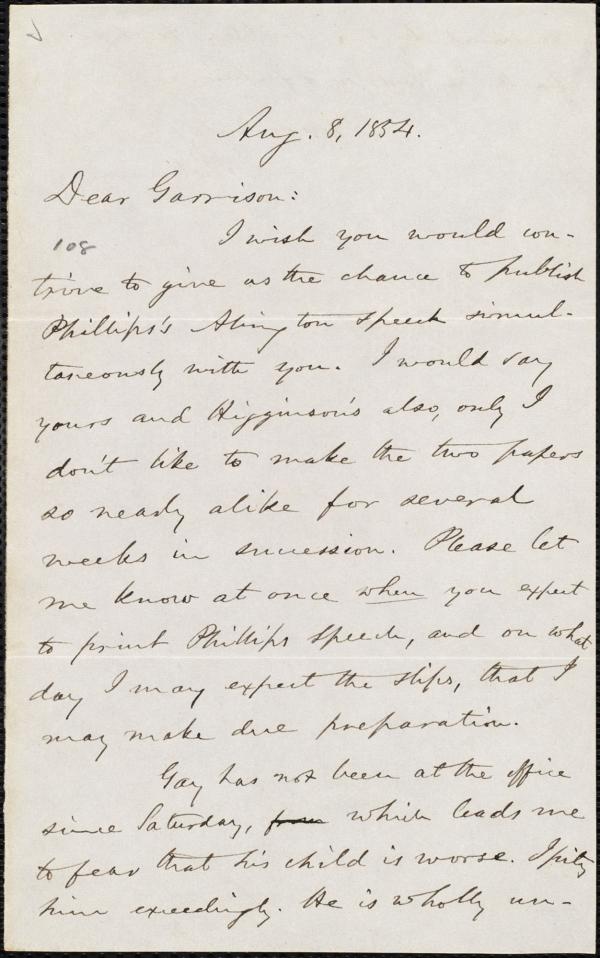 Aug. 8, 1854.
Dear Garrison:
108
I wish you would con-
trive to give us the chance to publish
Phillips's Abington speech simul-
taneously with you. I would say
yours and Higginson's also, only I
don't like to make the two papers
so nearly alike for several
weeks in succession. Please let
me know at once when you expect
to print Phillips speech, and on what
day I may expect the slips, that I
may make due preparation.
Gay has not been at the office
since Saturday, from which leads me
to fear that his child is worse. I pity
him exceedingly. He is wholly un-